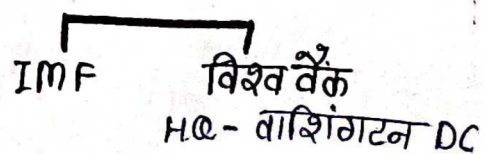 IMF विश्व बैंक
HQ - वाशिंगटन DC